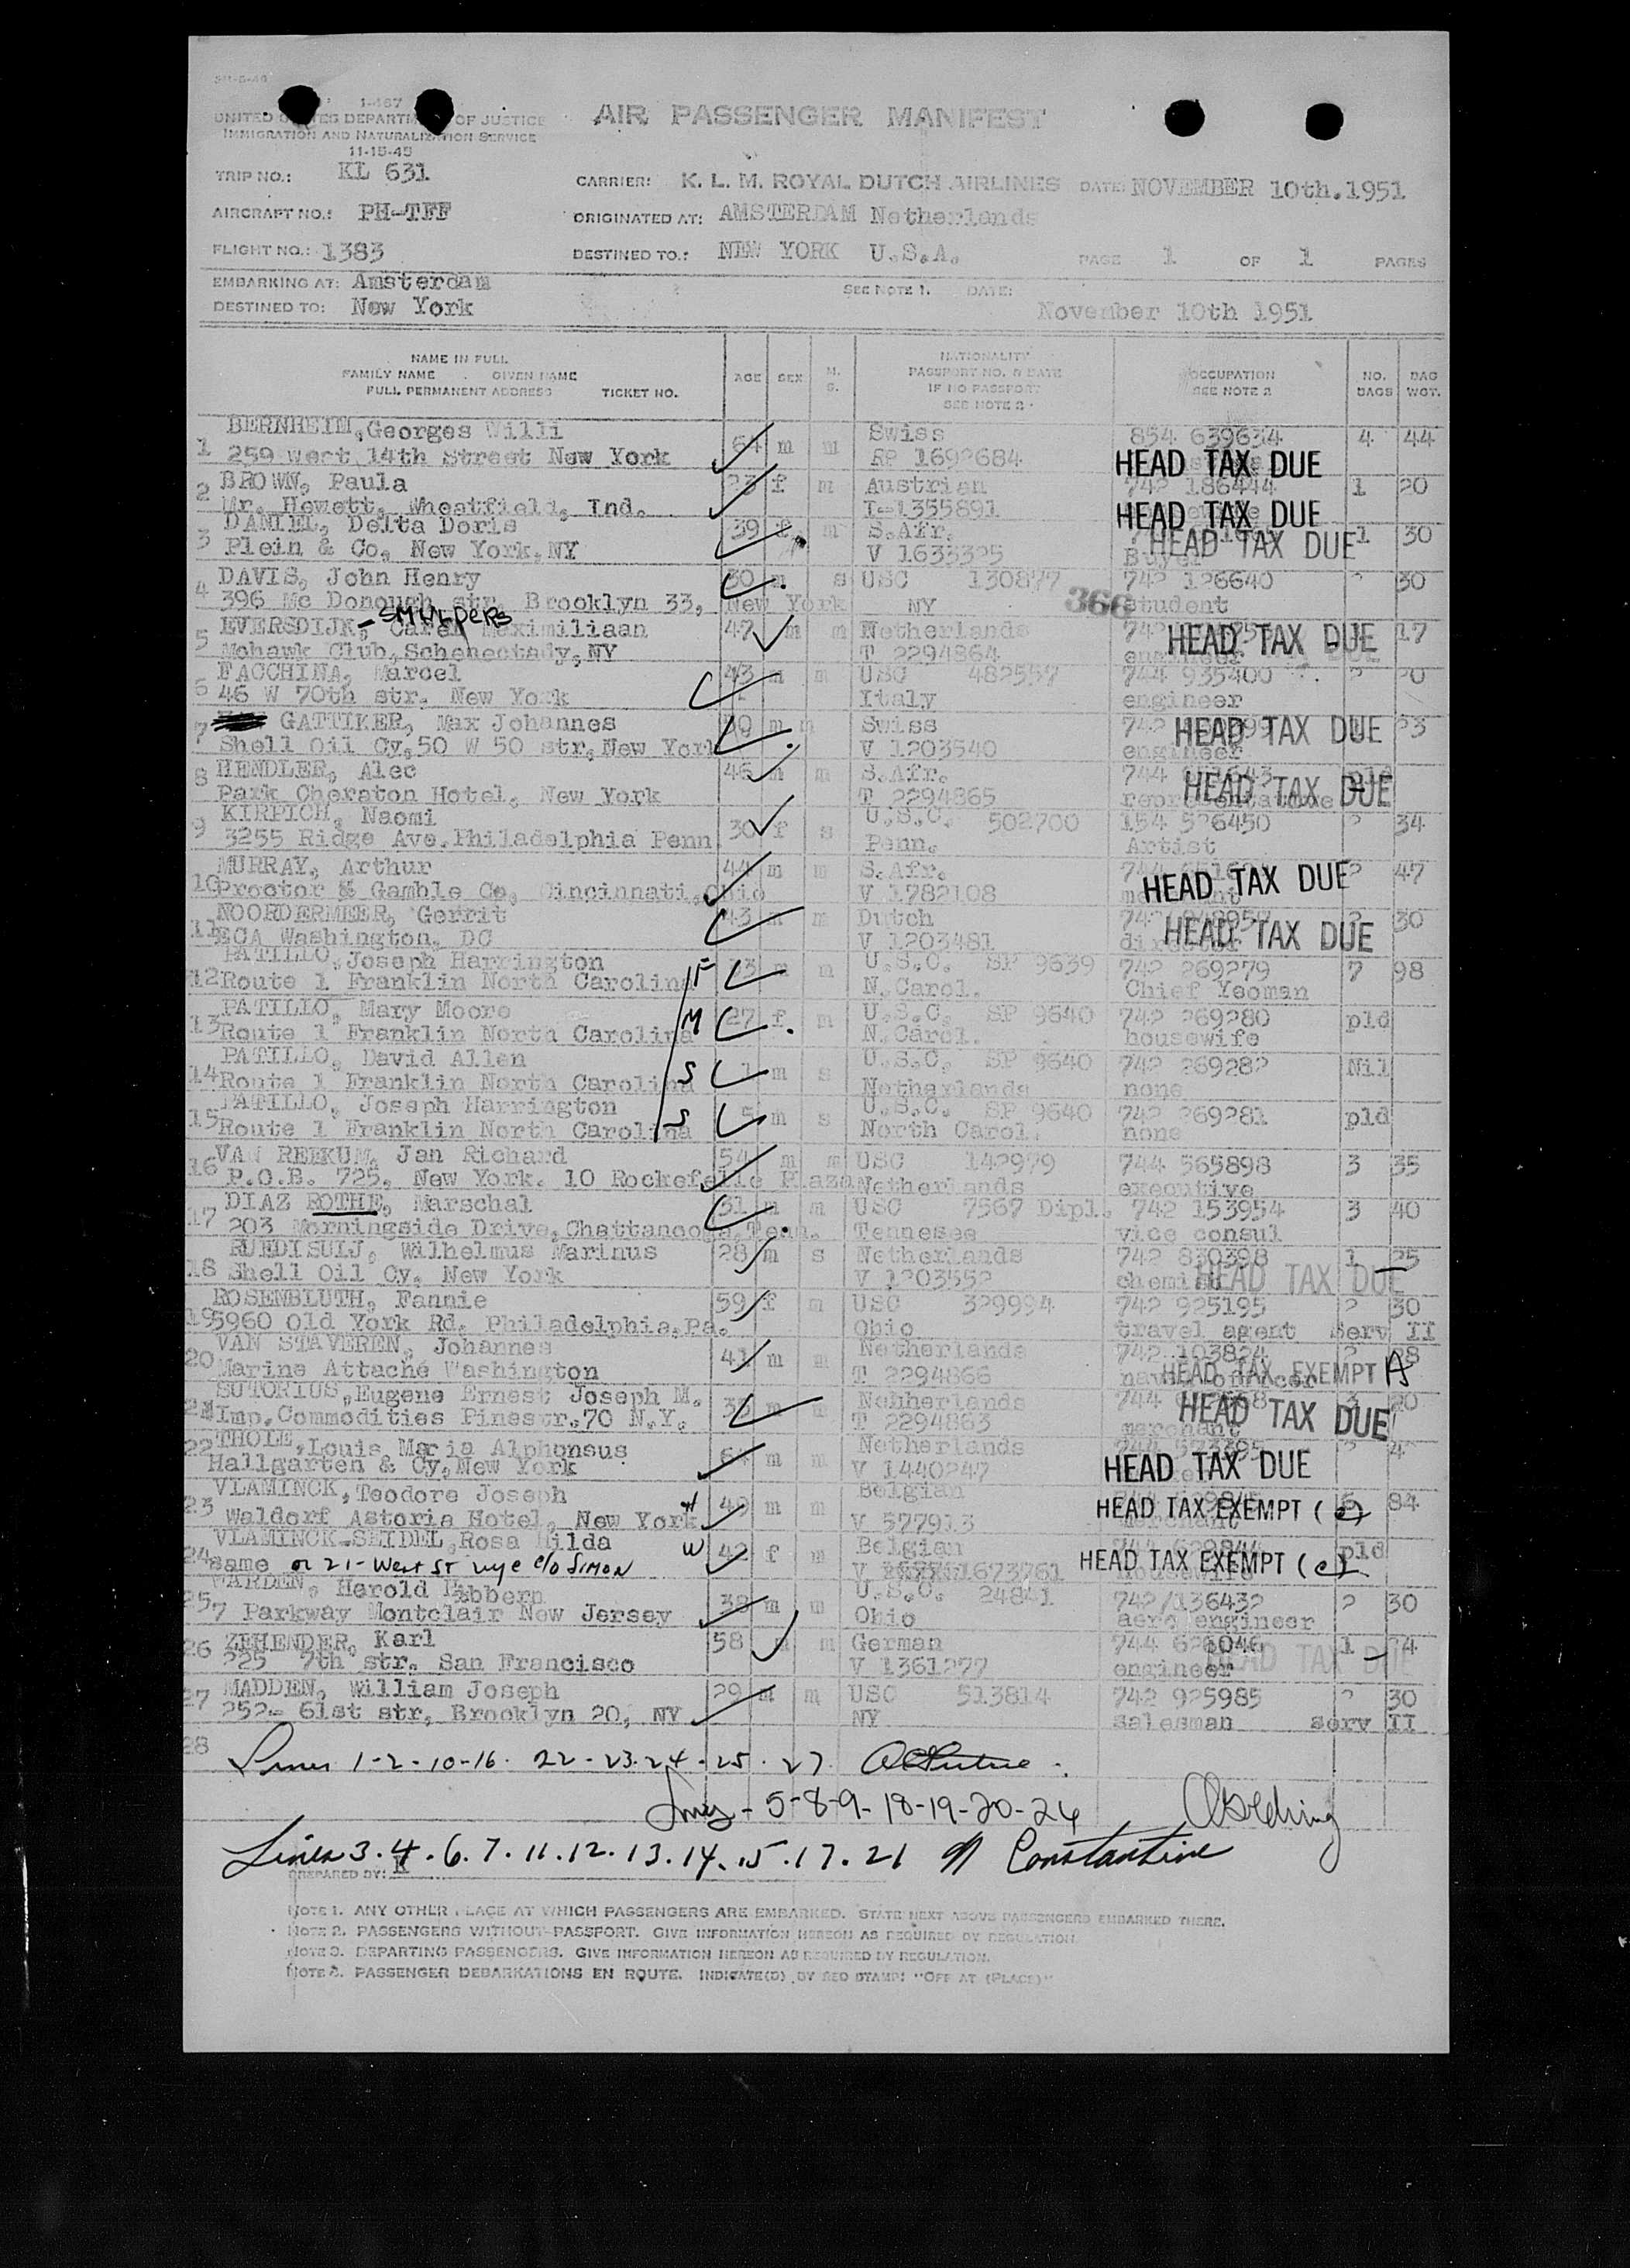 1-467
UNITED STATES DEPARTMENT OF JUSTICE
IMMIGRATION AND NATURALIZATION SERVICE
11-15-45
AIR PASSENGER MANIFEST
TRIP NO.: KL 631
CARRIER: K. L. M. ROYAL DUTCH AIRLINES DATE: NOVEMBER 10th.1951
AIRCRAFT NO.: PH-TFF
ORIGINATED AT: AMSTERDAM Netherlands
FLIGHT NO.: 1383
DESTINED TO.: NEW YORK U.S.A. PAGE 1 OF 1 PAGES
EMBARKING AT: Amsterdam SEE NOTE 1. DATE:
DESTINED TO: New York November 10th 1951
NAME IN FULL
FAMILY NAME GIVEN NAME
FULL PERMANENT ADDRESS TICKET NO.
AGE SEX M. S.
NATIONALITY
PASSPORT NO. & DATE
IF NO PASSPORT
SEE NOTE 2
OCCUPATION
SEE NOTE 2
NO. BAGS
BAG WGT.
BERNHEIM, Georges Willi 64 m m Swiss 854 639634 4 44
1 259 West 14th Street New York RP 1692684 HEAD TAX DUE
BROWN, Paula 23 f m Austrian 742 186444 1 20
2 Mr. Hewett, Wheatfield, Ind. I-1355891 HEAD TAX DUE
DANIEL, Delta Doris 39 f m S.Afr. 1 30
3 Plein & Co, New York, NY V 1633325 Buyer HEAD TAX DUE
DAVIS, John Henry 30 m s USC 130877 742 126640 2 30
4 396 Mc Donough str. Brooklyn 33, New York NY 366 student
EVERSDIJK, - SMULDERS Carel Maximiliaan 47 m m Netherlands 742 17
5 Mohawk Club, Schenectady, NY T 2294864 engineer HEAD TAX DUE
FACCHINA, Marcel 43 m m USC 482557 744 935400 2 20
6 46 W 70th str. New York Italy engineer
GATTIKER, Max Johannes 50 m m Swiss 742 23
7 Shell Oil Cy, 50 W 50 str, New York V 1203540 engineer HEAD TAX DUE
HENDLER, Alec 46 m m S.Afr. 744
8 Park Cheraton Hotel, New York T 2294865 representative HEAD TAX DUE
KIRPICH, Naomi 30 f s U.S.C. 502700 154 526450 2 34
9 3255 Ridge Ave. Philadelphia Penn. Penn. Artist
MURRAY, Arthur 44 m m S.Afr. 744 2 47
10 Proctor & Gamble Co, Cincinnati, Ohio V 1782108 HEAD TAX DUE
NOORDERMEER, Gerrit 43 m m Dutch 742 30
11 ECA Washington, DC V 1203481 director HEAD TAX DUE
PATILLO, Joseph Harrington F m m U.S.C. SP 9639 742 269279 7 98
12 Route 1 Franklin North Carolina N.Carol. Chief Yeoman
PATILLO, Mary Moore M 27 f m U.S.C. SP 9640 742 269280 pld
13 Route 1 Franklin North Carolina N.Carol. housewife
PATILLO, David Allen S 1 m s U.S.C. SP 9640 742 269282 Nil
14 Route 1 Franklin North Carolina Netherlands none
PATILLO, Joseph Harrington S 5 m s U.S.C. SP 9640 742 269281 pld
15 Route 1 Franklin North Carolina North Carol. none
VAN REEKUM, Jan Richard 54 m m USC 142979 744 565898 3 35
16 P.O.B. 725, New York. 10 Rockefelle Plaza Netherlands executive
DIAZ ROTHE, Marschal 31 m m USC 7567 Dipl. 742 153954 3 40
17 203 Morningside Drive, Chattanooga, Tenn. Tennesee vice consul
RUEDISULJ, Wilhelmus Marinus 28 m s Netherlands 742 830398 1 25
18 Shell Oil Cy, New York V 1203552 chemist HEAD TAX DUE
ROSENBLUTH, Fannie 59 f m USC 329994 742 925195 2 30
19 5960 Old York Rd. Philadelphia, Pa. Ohio travel agent Serv II
VAN STAVEREN, Johannes 41 m m Netherlands 742 103824 2 28
20 Marine Attaché Washington T 2294866 HEAD TAX EXEMPT A
SUTORIUS, Eugene Ernest Joseph M. m m Nehherlands 744 3 20
21 Imp. Commodities Pinestr. 70 N.Y. T 2294863 merchant HEAD TAX DUE
THOLE, Louis Maria Alphonsus 64 m m Netherlands 744 2
22 Hallgarten & Cy, New York V 1440247 HEAD TAX DUE
VLAMINCK, Teodore Joseph H 49 m m Belgian 84
23 Waldorf Astoria Hotel, New York V 577913 merchant HEAD TAX EXEMPT (e)
VLAMINCK-SEIDEL, Rosa Hilda W 42 f m Belgian pld
24 same or 21-West ST rye c/o SIMON V 1673761 housewife HEAD TAX EXEMPT (e)
VARDEN, Harold Ebbern 38 m m U.S.C. 24841 742/136432 2 30
25 7 Parkway Montclair New Jersey Ohio aero engineer
ZEHENDER, Karl 58 m m German 744 1
26 225 7th str. San Francisco V 1361277 engineer HEAD TAX DUE
MADDEN, William Joseph 29 m m USC 513814 742 925985 2 30
27 252- 61st str, Brooklyn 20, NY NY salesman serv II
28
Lines 1-2-10-16. 22-23-24-25-27.
5-8-9-18-19-20-26
Lines 3.4.6.7.11.12.13.14.15.17.21 Constantine
PREPARED BY:
NOTE 1. ANY OTHER PLACE AT WHICH PASSENGERS ARE EMBARKED. STATE NEXT ABOVE PASSENGERS EMBARKED THERE.
NOTE 2. PASSENGERS WITHOUT PASSPORT. GIVE INFORMATION HEREON AS REQUIRED BY REGULATION.
NOTE 3. DEPARTING PASSENGERS. GIVE INFORMATION HEREON AS REQUIRED BY REGULATION.
NOTE 3. PASSENGER DEBARKATIONS EN ROUTE. INDICATE(D) BY RED STAMP: "OFF AT (PLACE)"